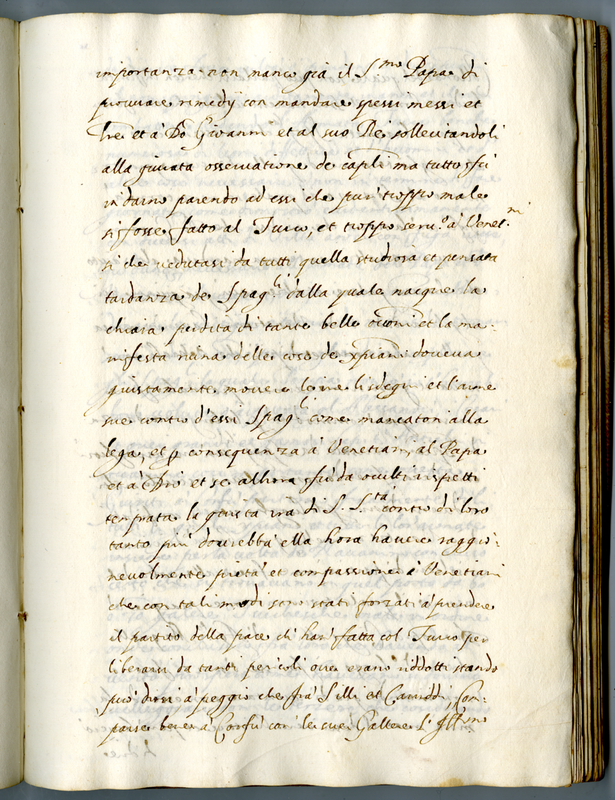 importanza non manco già il S.mo Papa di
procurare rimedij con mandare spessi messi et
lre et à Dõ Giovanni et al suo Rè sollecitandoli
alla giurata osservatione de capli ma tutto fù
in darno parendo ad essi che pur troppo male
si fosse fatto al Turco, et troppo serv.o à Venet.ni
si che vedutasi da tutti quella studiosa et pensata
tardanza de Spag.li dalla quale nacque la
chiara perdita di tante belle occoni et la ma-
nifesta ruina delle cose de xpiani doveva
giustamente movere le ire li sdegni et l'arme
sue contro d'essi Spag.li come mancatori alla
lega, et p consequenza à Venetiani, al Papa
et à Dio et se allhora fù da occulti rispetti
temprata la giusta ira di S. S.tà contro di loro
tanto più dovrebbe ella hora havere raggio-
nevolmente pietà et compassione à Venetiani
che con tali modi sono stati forzati à prendere
il partito della pace ch' han' fatta col Turco per
liberarsi da tanti pericoli ove erano ridotti stando
può dirsi à peggio che frà Scilli et Cariddi, Com-
parse bene à Corfù con le sue Gallere l' Ill.mo